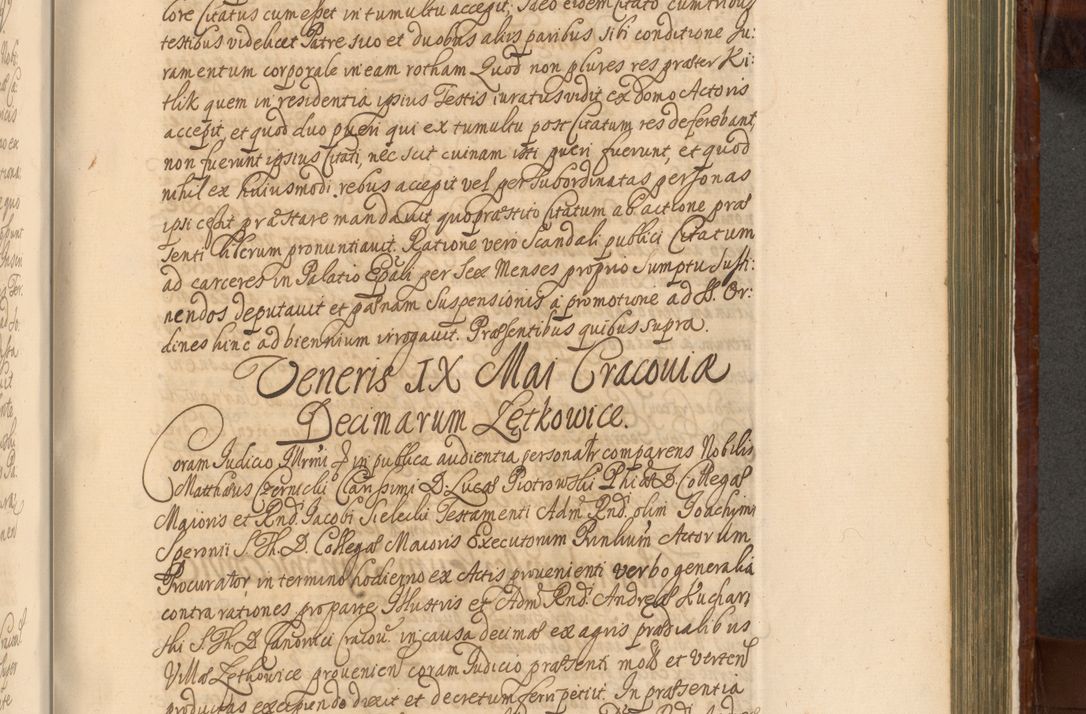 tore Citatus cum esset in tumultu accepit. Ideo eidem Citato cum tribus
testibus videlicet Patre suo et duobus aliis paribus sibi conditione Ju:
ramentum corporale in eam rotham Quod non plures res præter Ki:
tlik quem in residentia ipsius Testis iuratus vidit ex domo Actoris
accepit, et quod duo pueri qui ex tumultu post Citatum res deferebant,
non fuerunt ipsius Citati, nec scit cuinam isti pueri fuerunt, et quod
nihil ex huiusmodi rebus accepit vel per subordinatas personas
ipsi præstare mandavit quo præstito Citatum ab actione præ
senti liberum pronuntiavit. Ratione vero Scandali publici Citatum
ad carceres in Palatio Epali per Sex Menses proprio Sumptu Susti:
nendos deputavit et pænam Suspensionis a promotione ad SS. Or:
dines hinc ad biennium irrogavit. Præsentibus quibus supra.
Veneris IX Mai Cracoviæ
Decimarum Zętkowice.
Coram Judicio Illrmi in publica audientia personalr comparens Nobilis
Matthæus Czernicki Clarissimi D. Lucæ Piotrowski Phiæ D. Collegæ
Maioris et Rnd. Jacobi Sielecki Testamenti Adm. Rnd. olim Joachimi
Speronii S. Th. D. Collegæ Maioris Executorum Actorum
Procurator, in termino hodierno ex Actis provenienti verbo generalia
contra rationes pro parte Illustris et Adm. Rnd. Andreæ Kuchars
ski S. Th. D. Canonici Cracov. in causa decimæ ex agris prædialibus
Villæ Zetkovice provenien coram Judicio præsenti et verten
productas excipiendo dixit et decretum ferri petiit. In præsentia